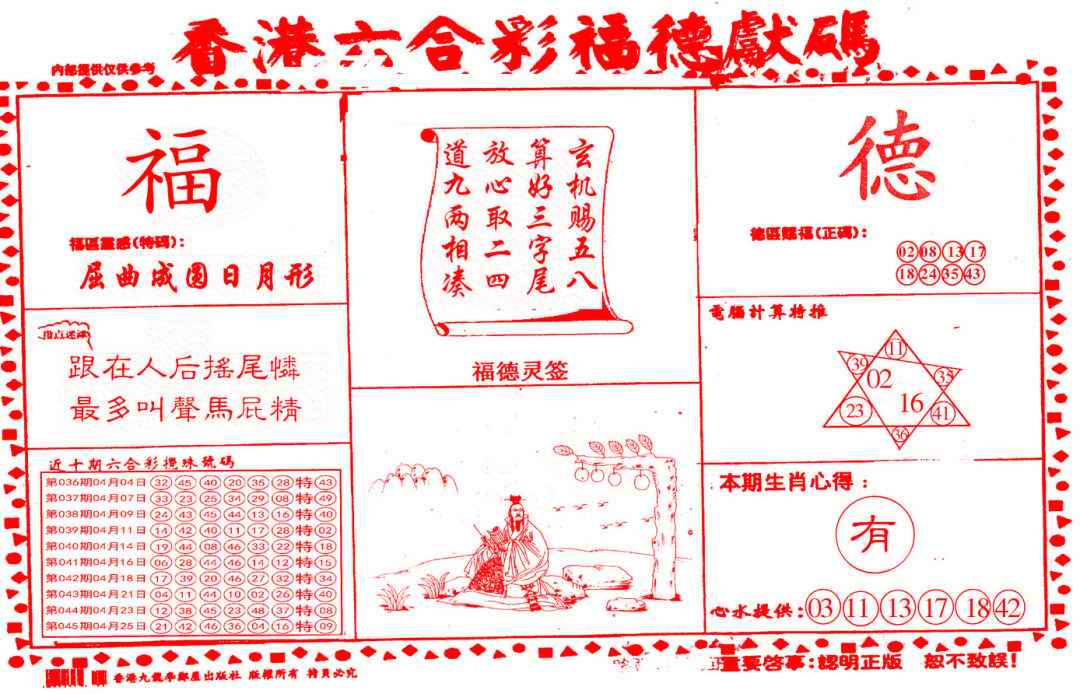 香港六合彩福德獻碼
内部提供仅供参考
福
福區靈感(特碼):
屈曲成圆日月形
指点迷津
跟在人后搖尾憐
最多叫聲馬屁精
近十期六合彩攪珠號碼
第036期04月04日 32 45 40 20 35 28 特 43
第037期04月07日 33 23 25 34 29 08 特 49
第038期04月09日 24 43 45 44 13 16 特 40
第039期04月11日 14 42 40 11 17 28 特 02
第040期04月14日 19 44 08 46 33 22 特 18
第041期04月16日 06 28 44 46 14 12 特 15
第042期04月18日 17 39 20 46 27 32 特 34
第043期04月21日 04 11 44 10 02 26 特 40
第044期04月23日 12 38 45 23 48 37 特 08
第045期04月25日 21 42 46 36 04 16 特 09
玄机赐五八
算好三字尾
放心取二四
道九两相凑
福德灵签
德
德區賜福(正碼):
02 08 13 17
18 24 35 43
電腦計算特推
11
39
33
02
16
23
41
36
本期生肖心得:
有
心水提供: 03 11 13 17 18 42
重要啓事:認明正版 恕不致誤!
版權所有